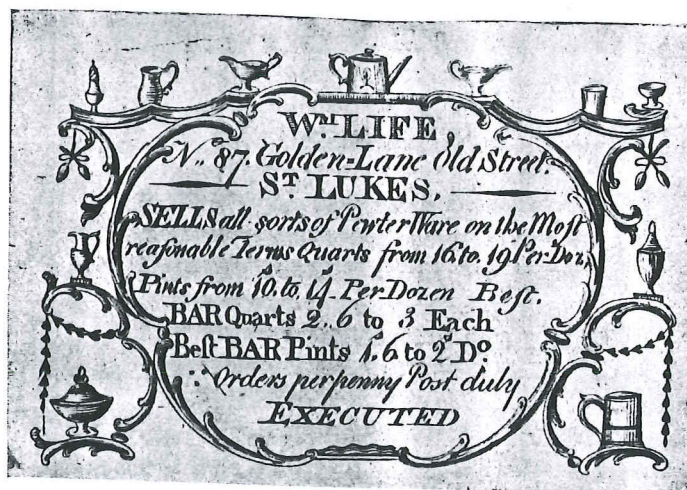 Wm LIFE,
N.. 87. Golden-Lane Old Street.
ST LUKES.
SELLS all sorts of Pewter Ware on the Moſt
reaſonable Terms Quarts from 16 to 19s Per Doz,
Pints from 10s to, 14s Per Dozen Beſt.
BAR Quarts 2.. 6 to 3s Each
Beſt BAR Pints 1s, 6 to 2s Do.
Orders per penny Post duly
EXECUTED